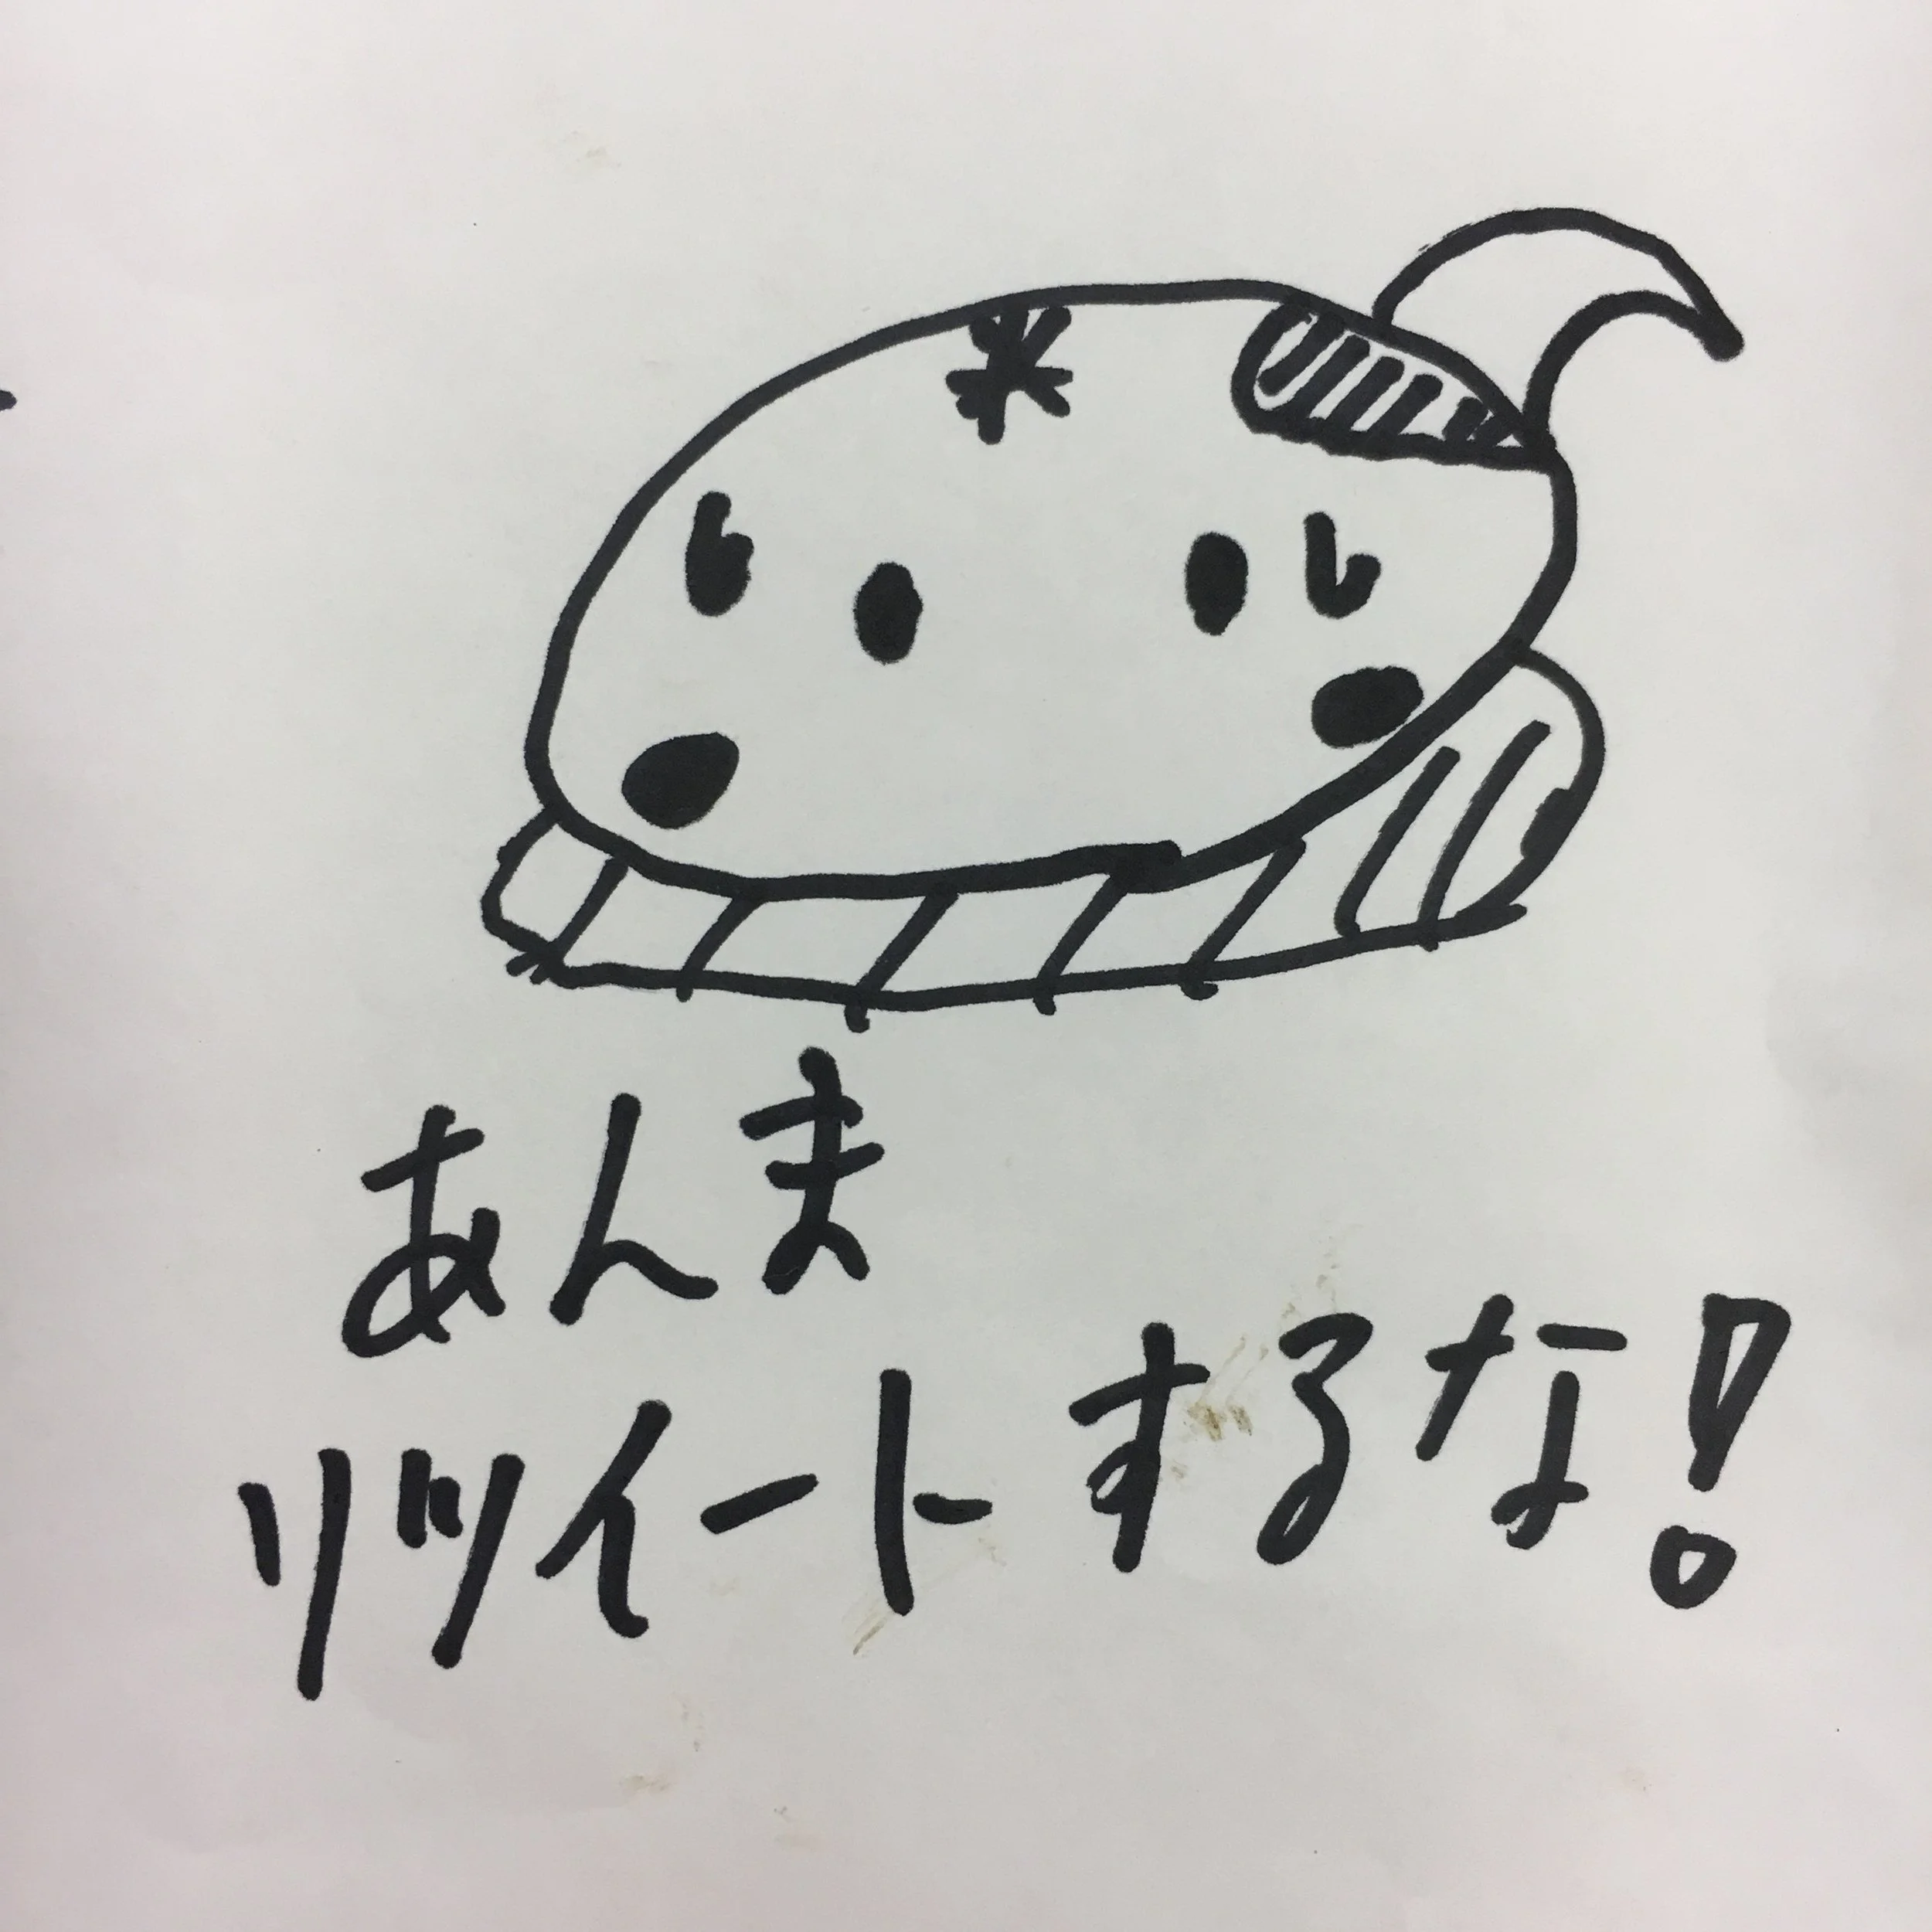 あんま
リツイートするな!